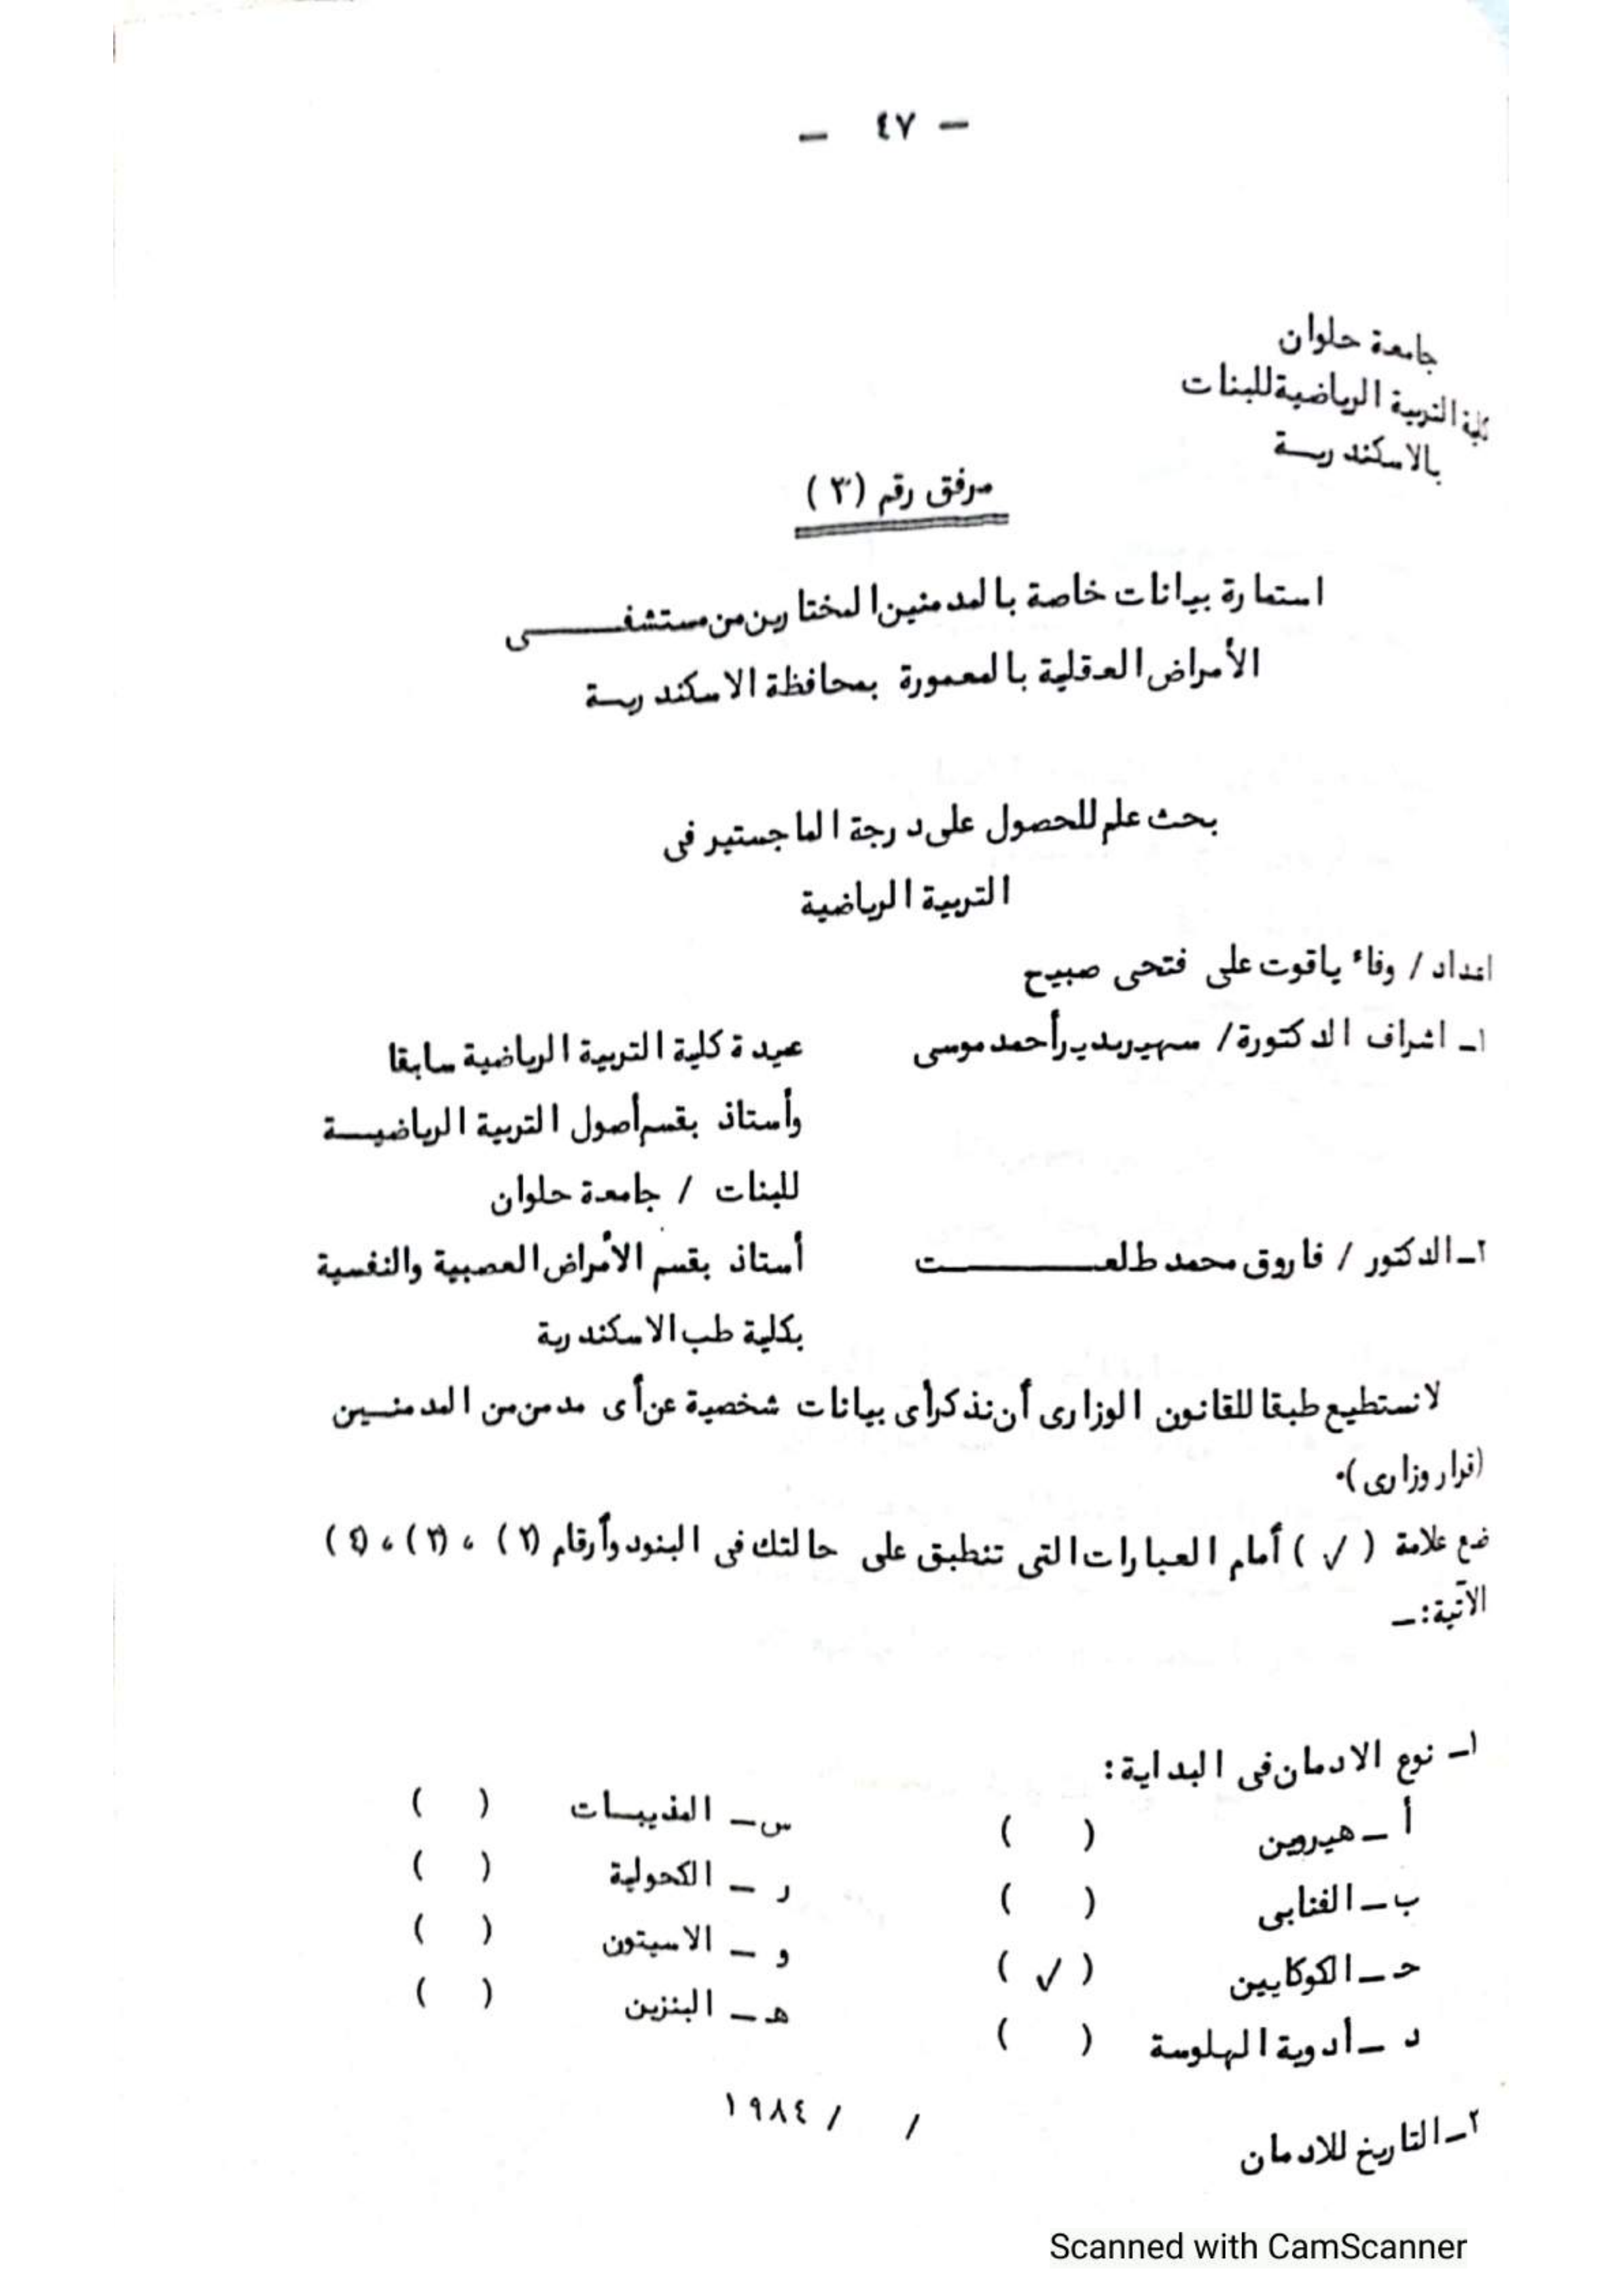 — ٤٧ —
جامعة حلوان
كلية التربية الرياضية للبنات
بالاسكندريـــة
مرفق رقم (٣)
استمارة بيانات خاصة بالمدمنين المختارين من مستشفــــــى
الأمراض العقلية بالمعمورة بمحافظة الاسكندريــة
بحث علم للحصول على درجة الماجستير فى
التربية الرياضية
اعداد / وفاء ياقوت على فتحى صبيح
١ـ اشراف الدكتورة/ سهير بدير أحمد موسى عميدة كلية التربية الرياضية سابقا
وأستاذ بقسم أصول التربية الرياضيــــة
للبنات / جامعة حلوان
٢ـ الدكتور / فاروق محمد طلعــــــــــت أستاذ بقسم الأمراض العصبية والنفسية
بكلية طب الاسكندرية
لانستطيع طبقا للقانون الوزارى أن نذكر أى بيانات شخصية عن أى مدمن من المدمنــين
(قرار وزارى)٠
ضع علامة ( √ ) أمام العبارات التى تنطبق على حالتك فى البنود وأرقام (٢) ، (٣) ، (٤)
الآتية:ــ
١ـ نوع الادمان فى البداية:
أ ــ هيروين ( ) س ــ المذيبــات ( )
ب ــ القنابى ( ) ر ــ الكحولية ( )
حـ ــ الكوكايين ( √ ) و ــ الاسيتون ( )
د ــ أدوية الهلوسة ( ) هـ ــ البنزين ( )
٢ـ التاريخ للادمان / / ١٩٨٤
Scanned with CamScanner